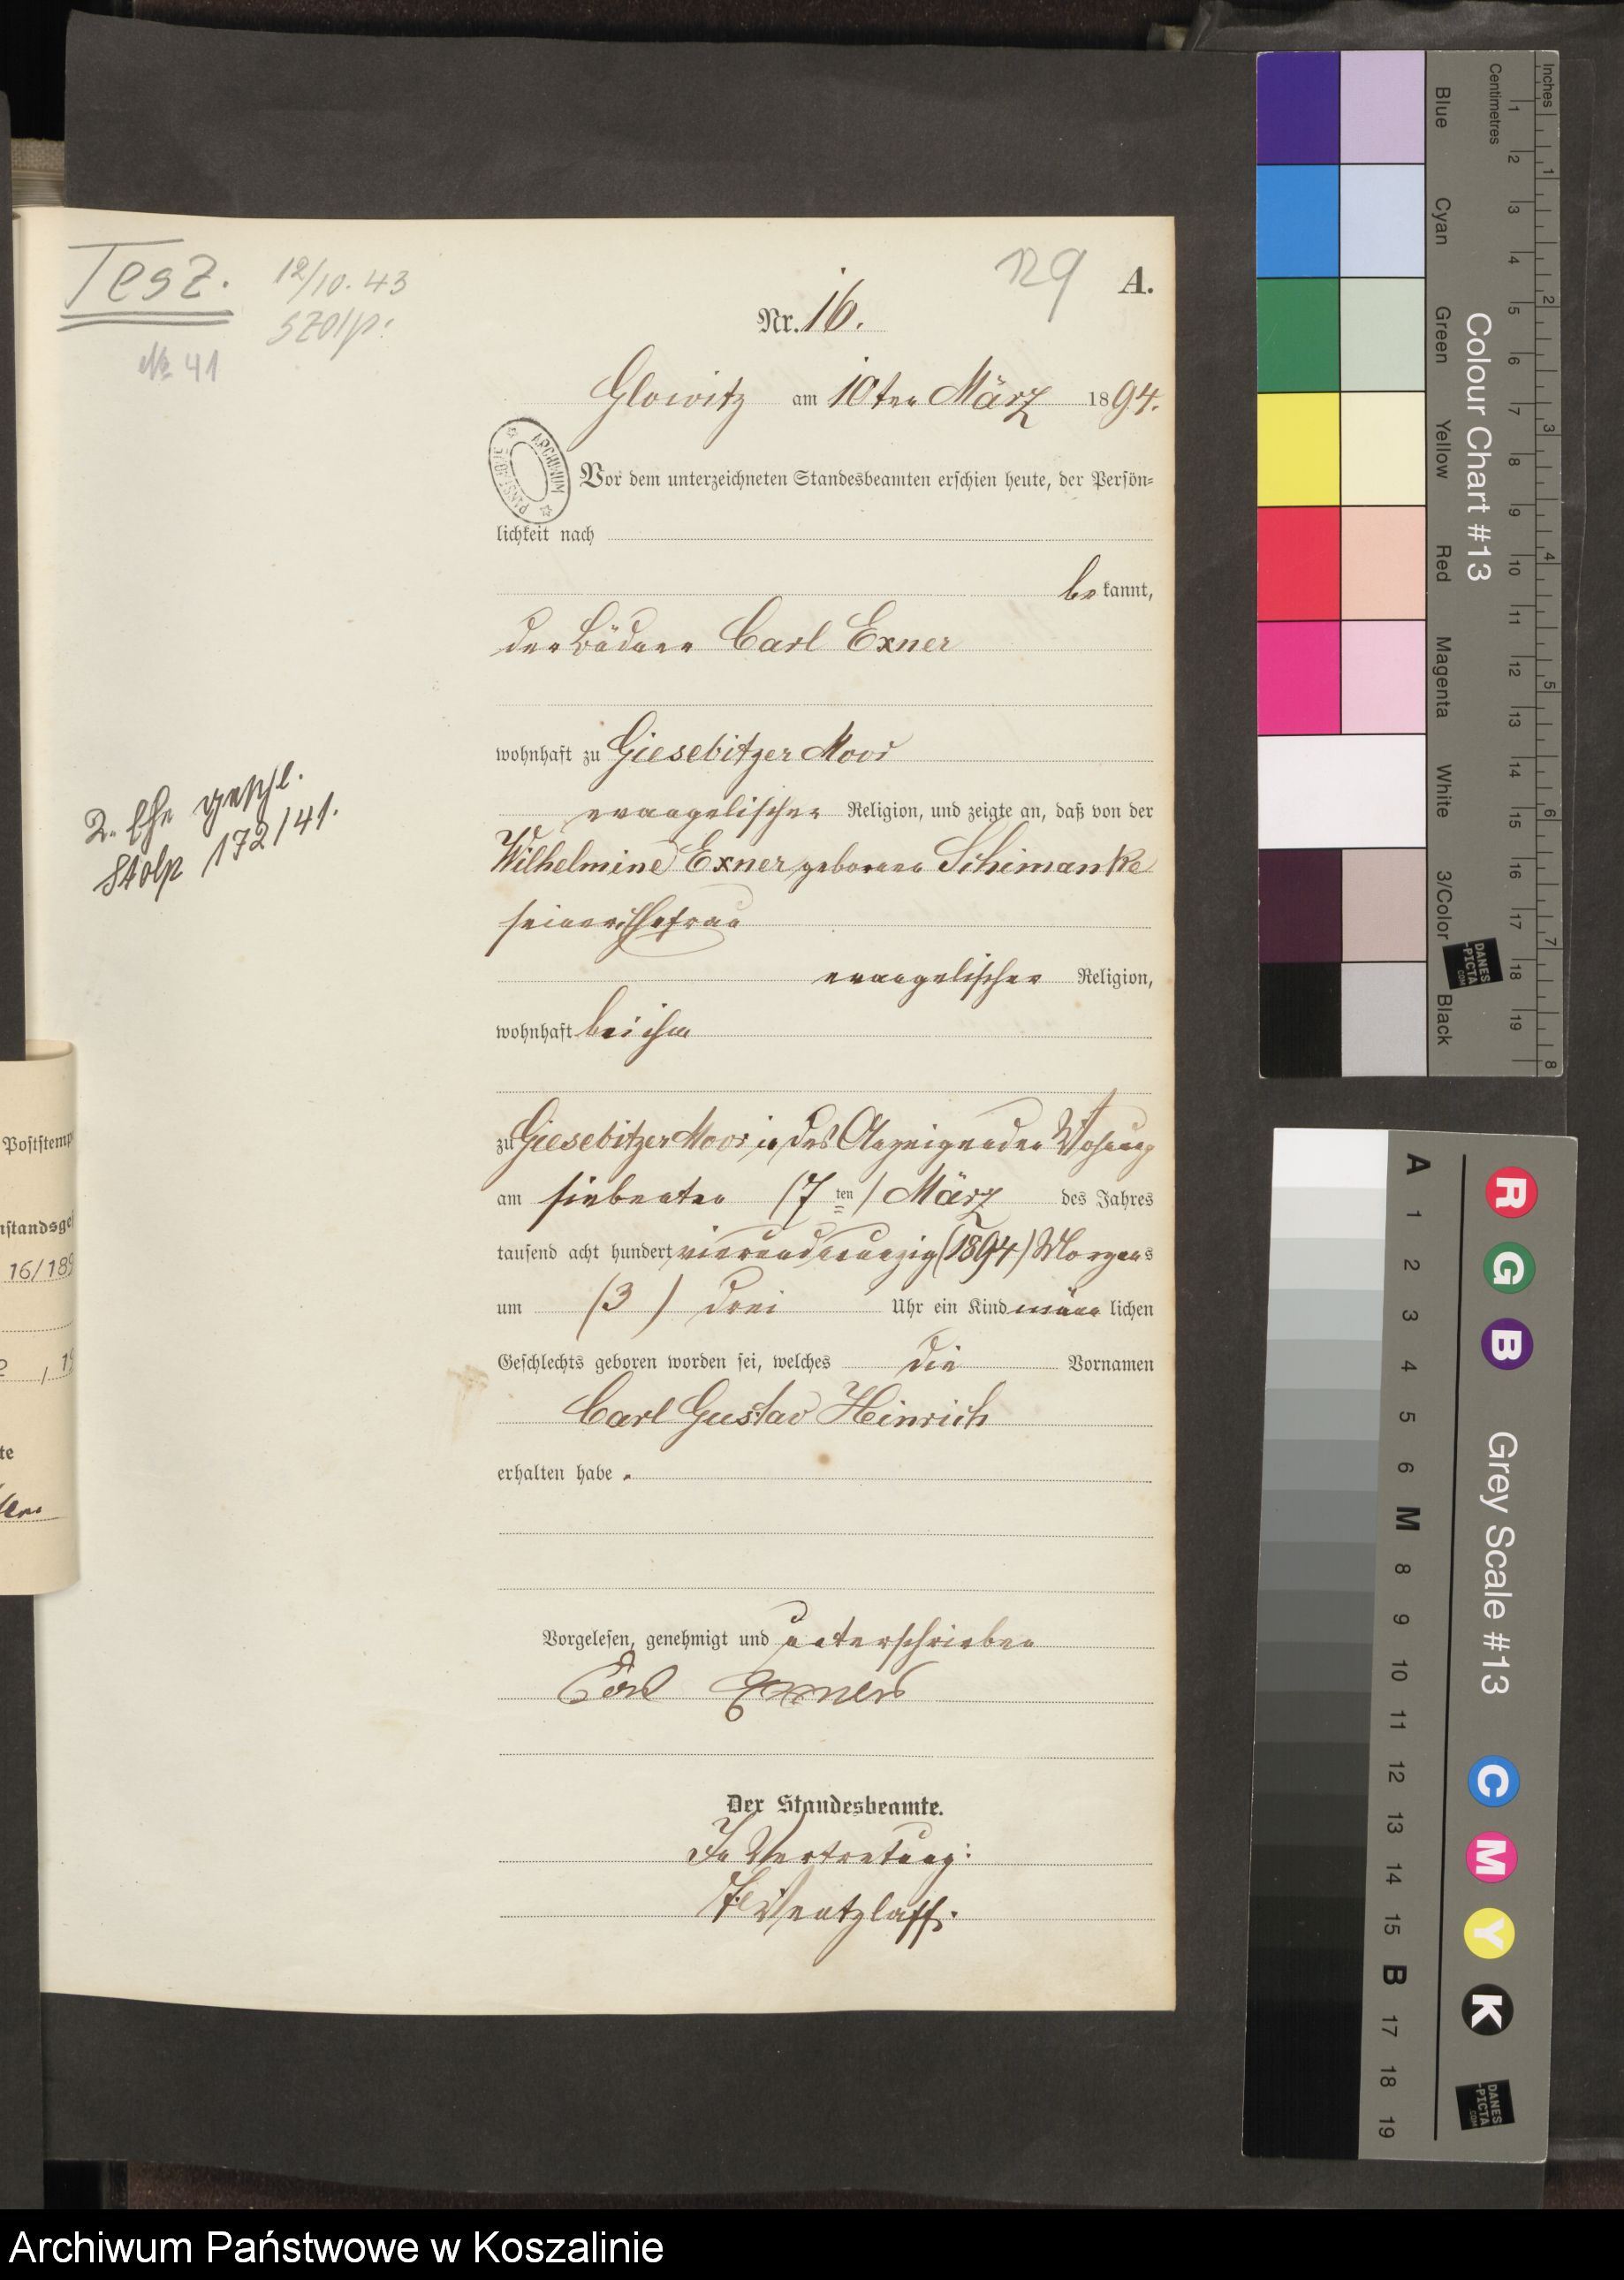 Tesz.
12/10. 43
Szolp.
No 41
129
A.
Nr. 16.
Glowitz am 10ten März 1894.
ARCHIWUM PAŃSTWOWE
Vor dem unterzeichneten Standesbeamten erschien heute, der Persön=
lichkeit nach
bekannt,
der Büdner Carl Exner
wohnhaft zu Giesebitzer Moor
evangelischer Religion, und zeigte an, daß von der
Wilhelmine Exner geborene Schimanke
seiner Ehefrau
evangelischer Religion,
wohnhaft bei ihm
zu Giesebitzer Moor in des Anzeigenden Wohnung
am siebenten (7ten) März des Jahres
tausend acht hundert vierundneunzig (1894) Morgens
um (3) drei Uhr ein Kind männlichen
Geschlechts geboren worden sei, welches die Vornamen
Carl Gustav Heinrich
erhalten habe.
2. Ehe geschl.
Stolp 172/41.
Vorgelesen, genehmigt und unterschrieben
Carl Exner
Der Standesbeamte.
In Vertretung:
Wentzlaff.
Poststemp
nstandsge
16/189
19
te
Inches
Centimetres
Colour Chart #13
Blue
Cyan
Green
Yellow
Red
Magenta
White
3/Color
Black
1 2 3 4 5 6 7 8 9 10 11 12 13 14 15 16 17 18 19
1 2 3 4 5 6 7 8
DANES
-PICTA
.COM
Grey Scale #13
R G B
C M Y K
A 1 2 3 4 5 6 M 8 9 10 11 12 13 14 15 B 17 18 19
DANES
-PICTA
.COM
Archiwum Państwowe w Koszalinie